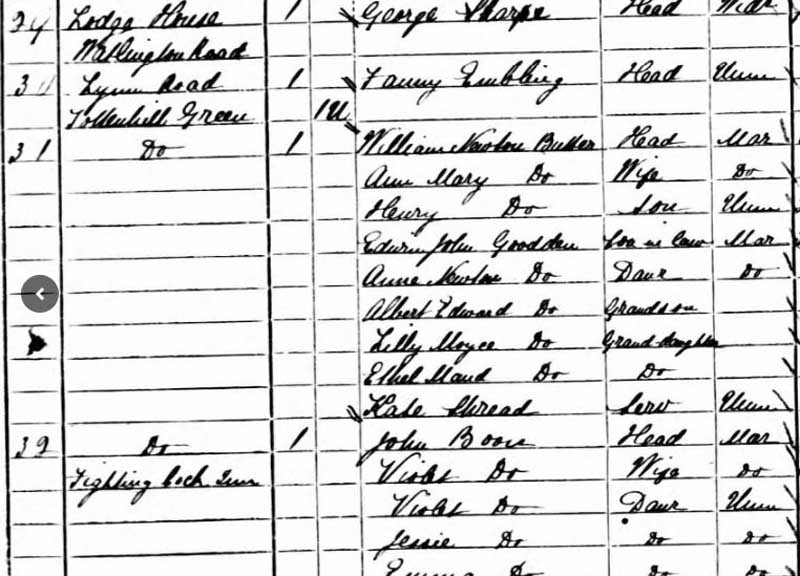 29 Lodge House 1 George Sharpe Head Widr
Watlington Road
30 Lynn Road 1 Fanny Embling Head Unm
Tottenhill Green 1U
31 Do 1 William Newton Butter Head Mar
Ann Mary Do Wife Do
Henry Do Son Unm
Edwin John Goodden Son in law Mar
Anne Newton Do Daur Do
Albert Edward Do Grandson
Lilly Do Grand daughter
Ethel Maud Do Do
Kate Shread Serv Unm
32 Do 1 John Boon Head Mar
Fighting Cock Inn Violet Do Wife Do
Violet Do Daur Unm
Jessie Do Do Do
Emma Do Do Do